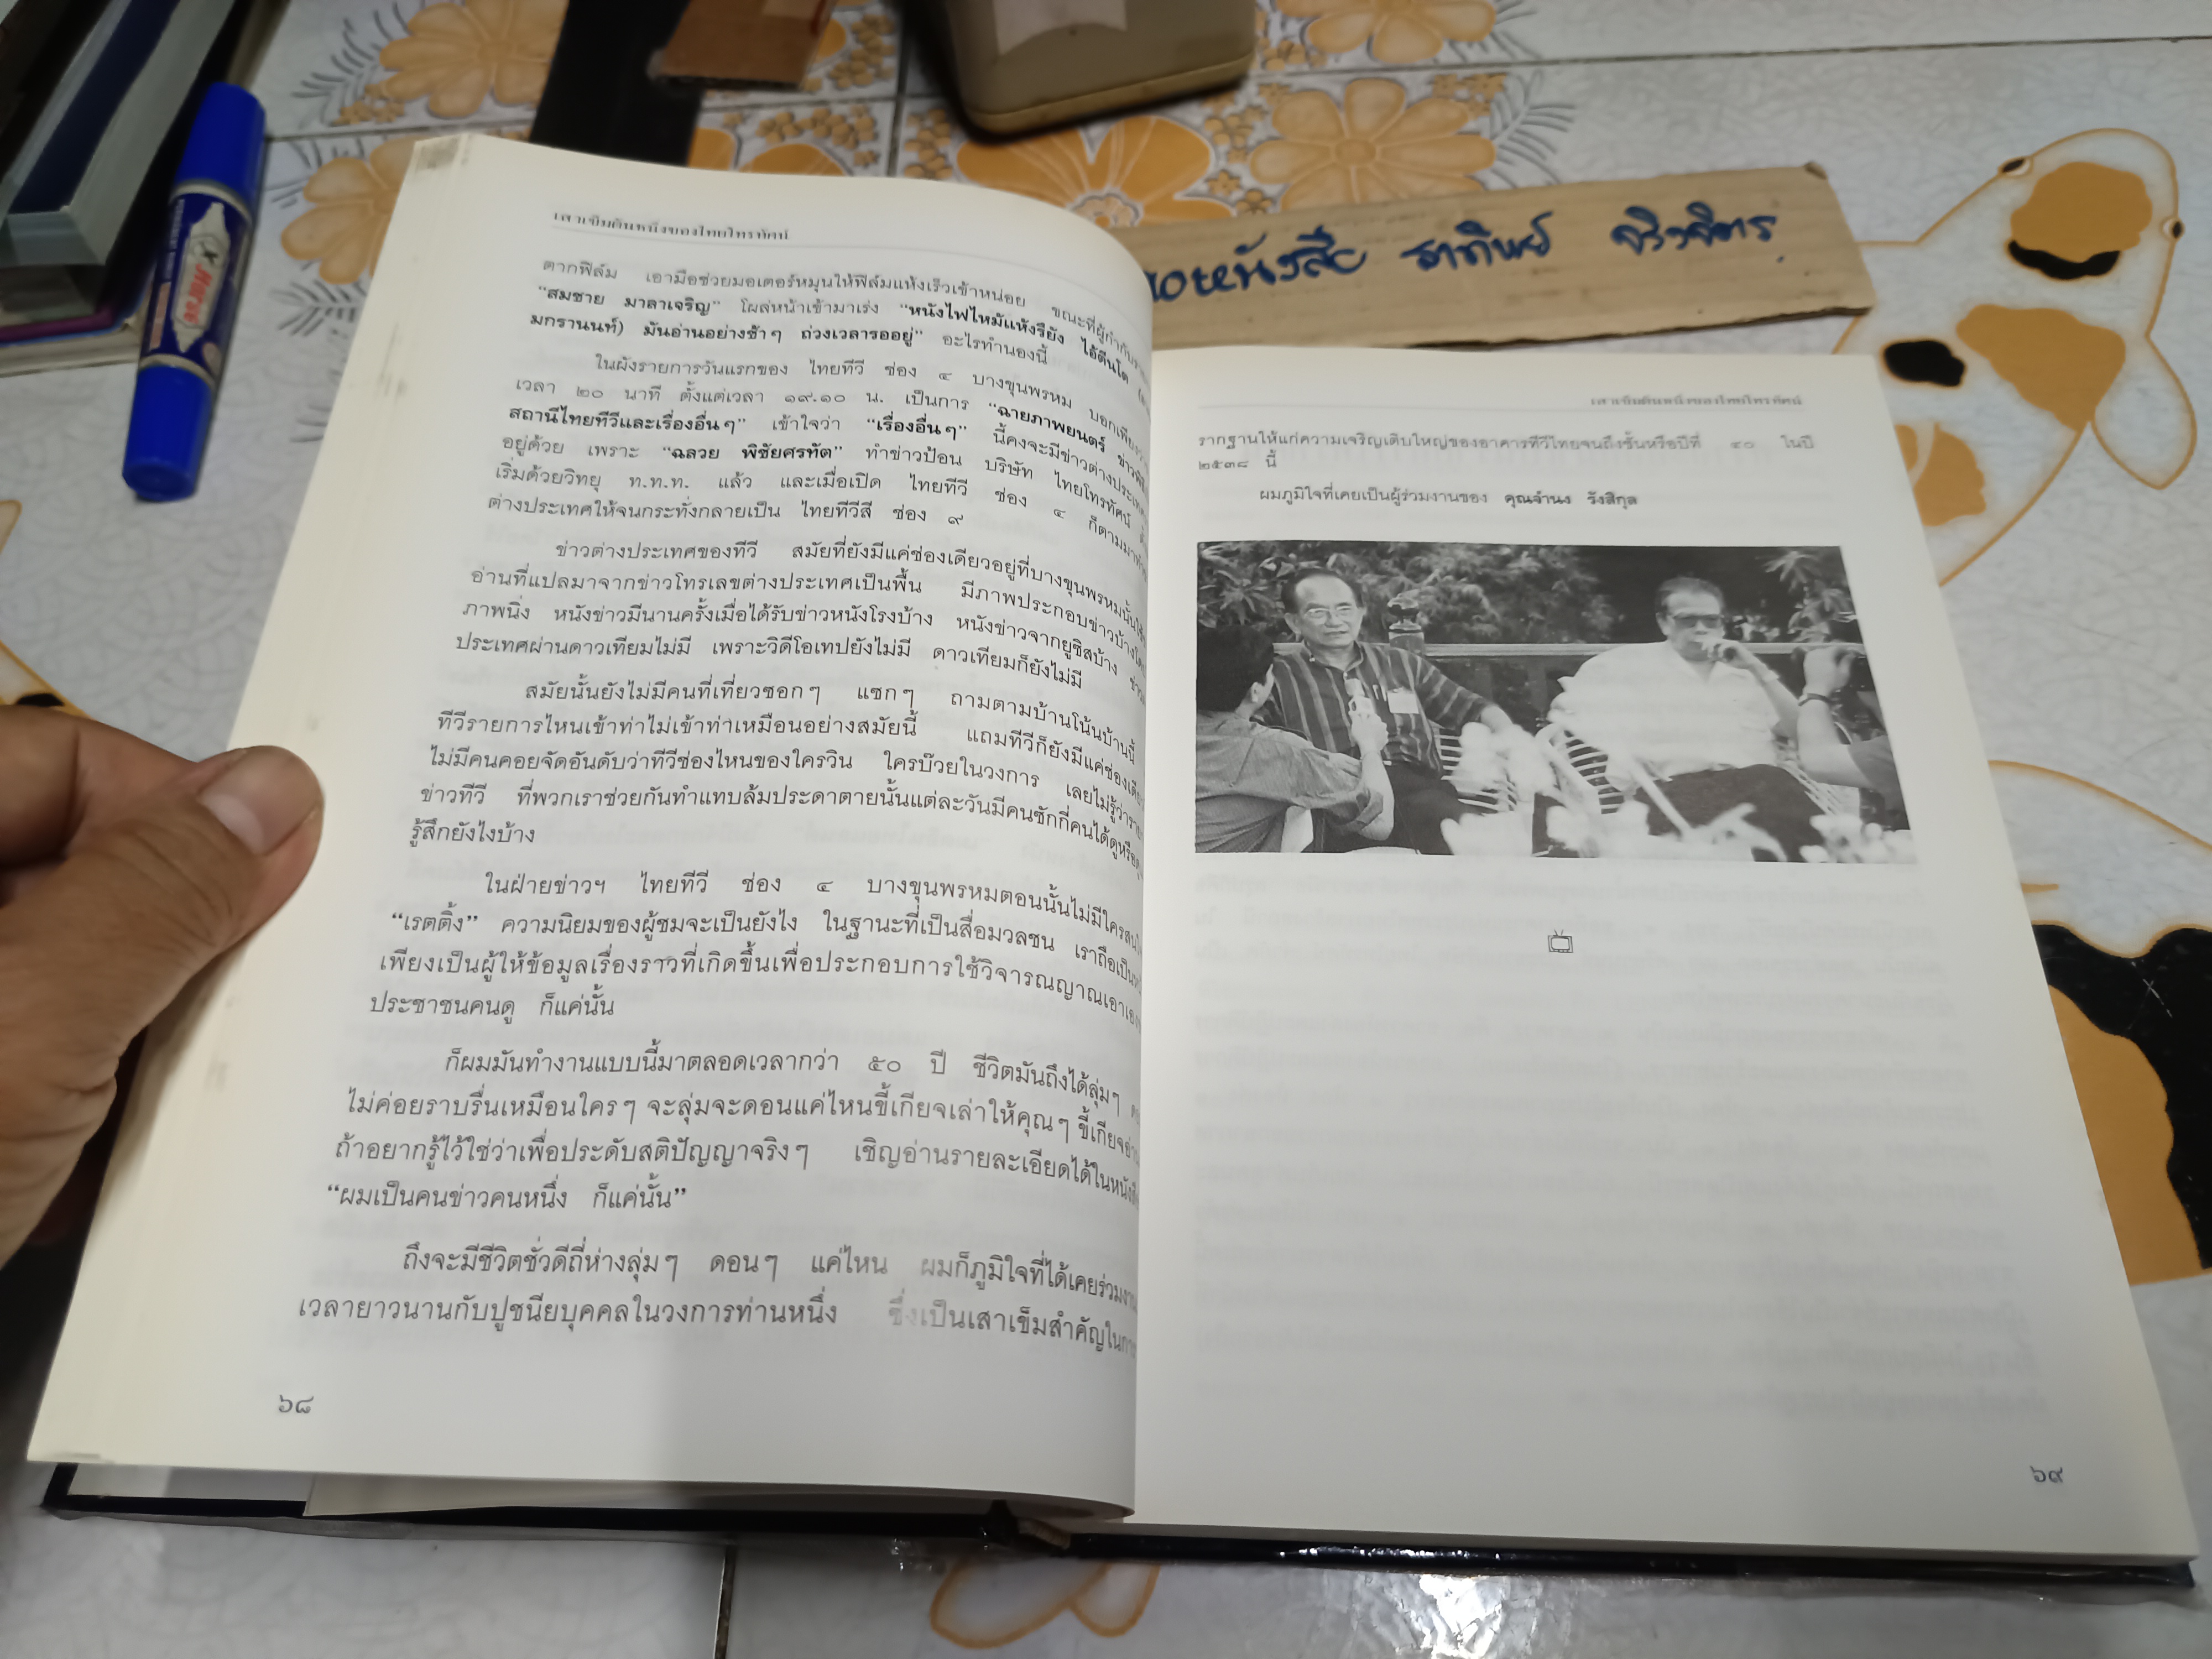 เสาเข็มต้นหนึ่งของไทยโทรทัศน์
ตากฟิล์ม เอามือช่วยมอเตอร์หมุนให้ฟิล์มแห้งเร็วเข้าหน่อย ขณะที่ผู้กำกับ
“สมชาย มาลาเจริญ” โผล่หน้าเข้ามาเร่ง “หนังไฟไหม้แห้งรึยัง ไอ้ตีนโต
มกรานนท์) มันอ่านอย่างช้าๆ ถ่วงเวลารออยู่” อะไรทำนองนี้
ในผังรายการวันแรกของ ไทยทีวี ช่อง ๔ บางขุนพรหม บอกเพียง
เวลา ๒๐ นาที ตั้งแต่เวลา ๑๙.๑๐ น. เป็นการ “ฉายภาพยนตร์
สถานีไทยทีวีและเรื่องอื่นๆ” เข้าใจว่า “เรื่องอื่นๆ” นี้คงจะมีข่าวต่างประเทศ
อยู่ด้วย เพราะ “ฉลวย พิชัยศรทัต” ทำข่าวป้อน บริษัท ไทยโทรทัศน์
เริ่มด้วยวิทยุ ท.ท.ท. แล้ว และเมื่อเปิด ไทยทีวี ช่อง ๔ ก็ตามมาทำ
ต่างประเทศให้จนกระทั่งกลายเป็น ไทยทีวีสี ช่อง ๙
ข่าวต่างประเทศของทีวี สมัยที่ยังมีแค่ช่องเดียวอยู่ที่บางขุนพรหมนั้น
อ่านที่แปลมาจากข่าวโทรเลขต่างประเทศเป็นพื้น มีภาพประกอบข่าวบ้าง
ภาพนิ่ง หนังข่าวมีนานครั้งเมื่อได้รับข่าวหนังโรงบ้าง หนังข่าวจากยูซิสบ้าง
ประเทศผ่านดาวเทียมไม่มี เพราะวิดีโอเทปยังไม่มี ดาวเทียมก็ยังไม่มี
สมัยนั้นยังไม่มีคนที่เที่ยวซอกๆ แซกๆ ถามตามบ้านโน้นบ้านนี้
ทีวีรายการไหนเข้าท่าไม่เข้าท่าเหมือนอย่างสมัยนี้ แถมทีวีก็ยังมีแค่ช่องเดียว
ไม่มีคนคอยจัดอันดับว่าทีวีช่องไหนของใครวิน ใครบ๊วยในวงการ เลยไม่รู้ว่า
ข่าวทีวี ที่พวกเราช่วยกันทำแทบล้มประดาตายนั้นแต่ละวันมีคนซักกี่คนได้ดูหรือ
รู้สึกยังไงบ้าง
ในฝ่ายข่าวฯ ไทยทีวี ช่อง ๔ บางขุนพรหมตอนนั้นไม่มีใครสนใจ
“เรตติ้ง” ความนิยมของผู้ชมจะเป็นยังไง ในฐานะที่เป็นสื่อมวลชน เราถือเป็น
เพียงเป็นผู้ให้ข้อมูลเรื่องราวที่เกิดขึ้นเพื่อประกอบการใช้วิจารณญาณเอาเอง
ประชาชนคนดู ก็แค่นั้น
ก็ผมมันทำงานแบบนี้มาตลอดเวลากว่า ๕๐ ปี ชีวิตมันถึงได้ลุ่มๆ
ไม่ค่อยราบรื่นเหมือนใครๆ จะลุ่มจะดอนแค่ไหนขี้เกียจเล่าให้คุณๆ ขี้เกียจ
ถ้าอยากรู้ไว้ใช่ว่าเพื่อประดับสติปัญญาจริงๆ เชิญอ่านรายละเอียดได้ใน
“ผมเป็นคนข่าวคนหนึ่ง ก็แค่นั้น”
ถึงจะมีชีวิตชั่วดีถี่ห่างลุ่มๆ ดอนๆ แค่ไหน ผมก็ภูมิใจที่ได้เคยร่วมงาน
เวลายาวนานกับปูชนียบุคคลในวงการท่านหนึ่ง ซึ่งเป็นเสาเข็มสำคัญใน
๖๘
เสาเข็มต้นหนึ่งของไทยโทรทัศน์
รากฐานให้แก่ความเจริญเติบใหญ่ของอาคารทีวีไทยจนถึงชั้นหรือปีที่ ๔๐ ในปี
๒๕๓๘ นี้
ผมภูมิใจที่เคยเป็นผู้ร่วมงานของ คุณจำนง รังสิกุล
๖๙
Horse